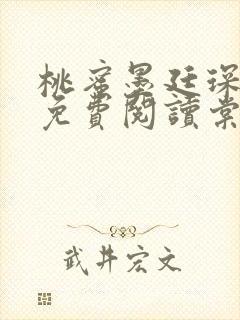 桃蜜墨廷琛
免費閱讀棠
武井宏文